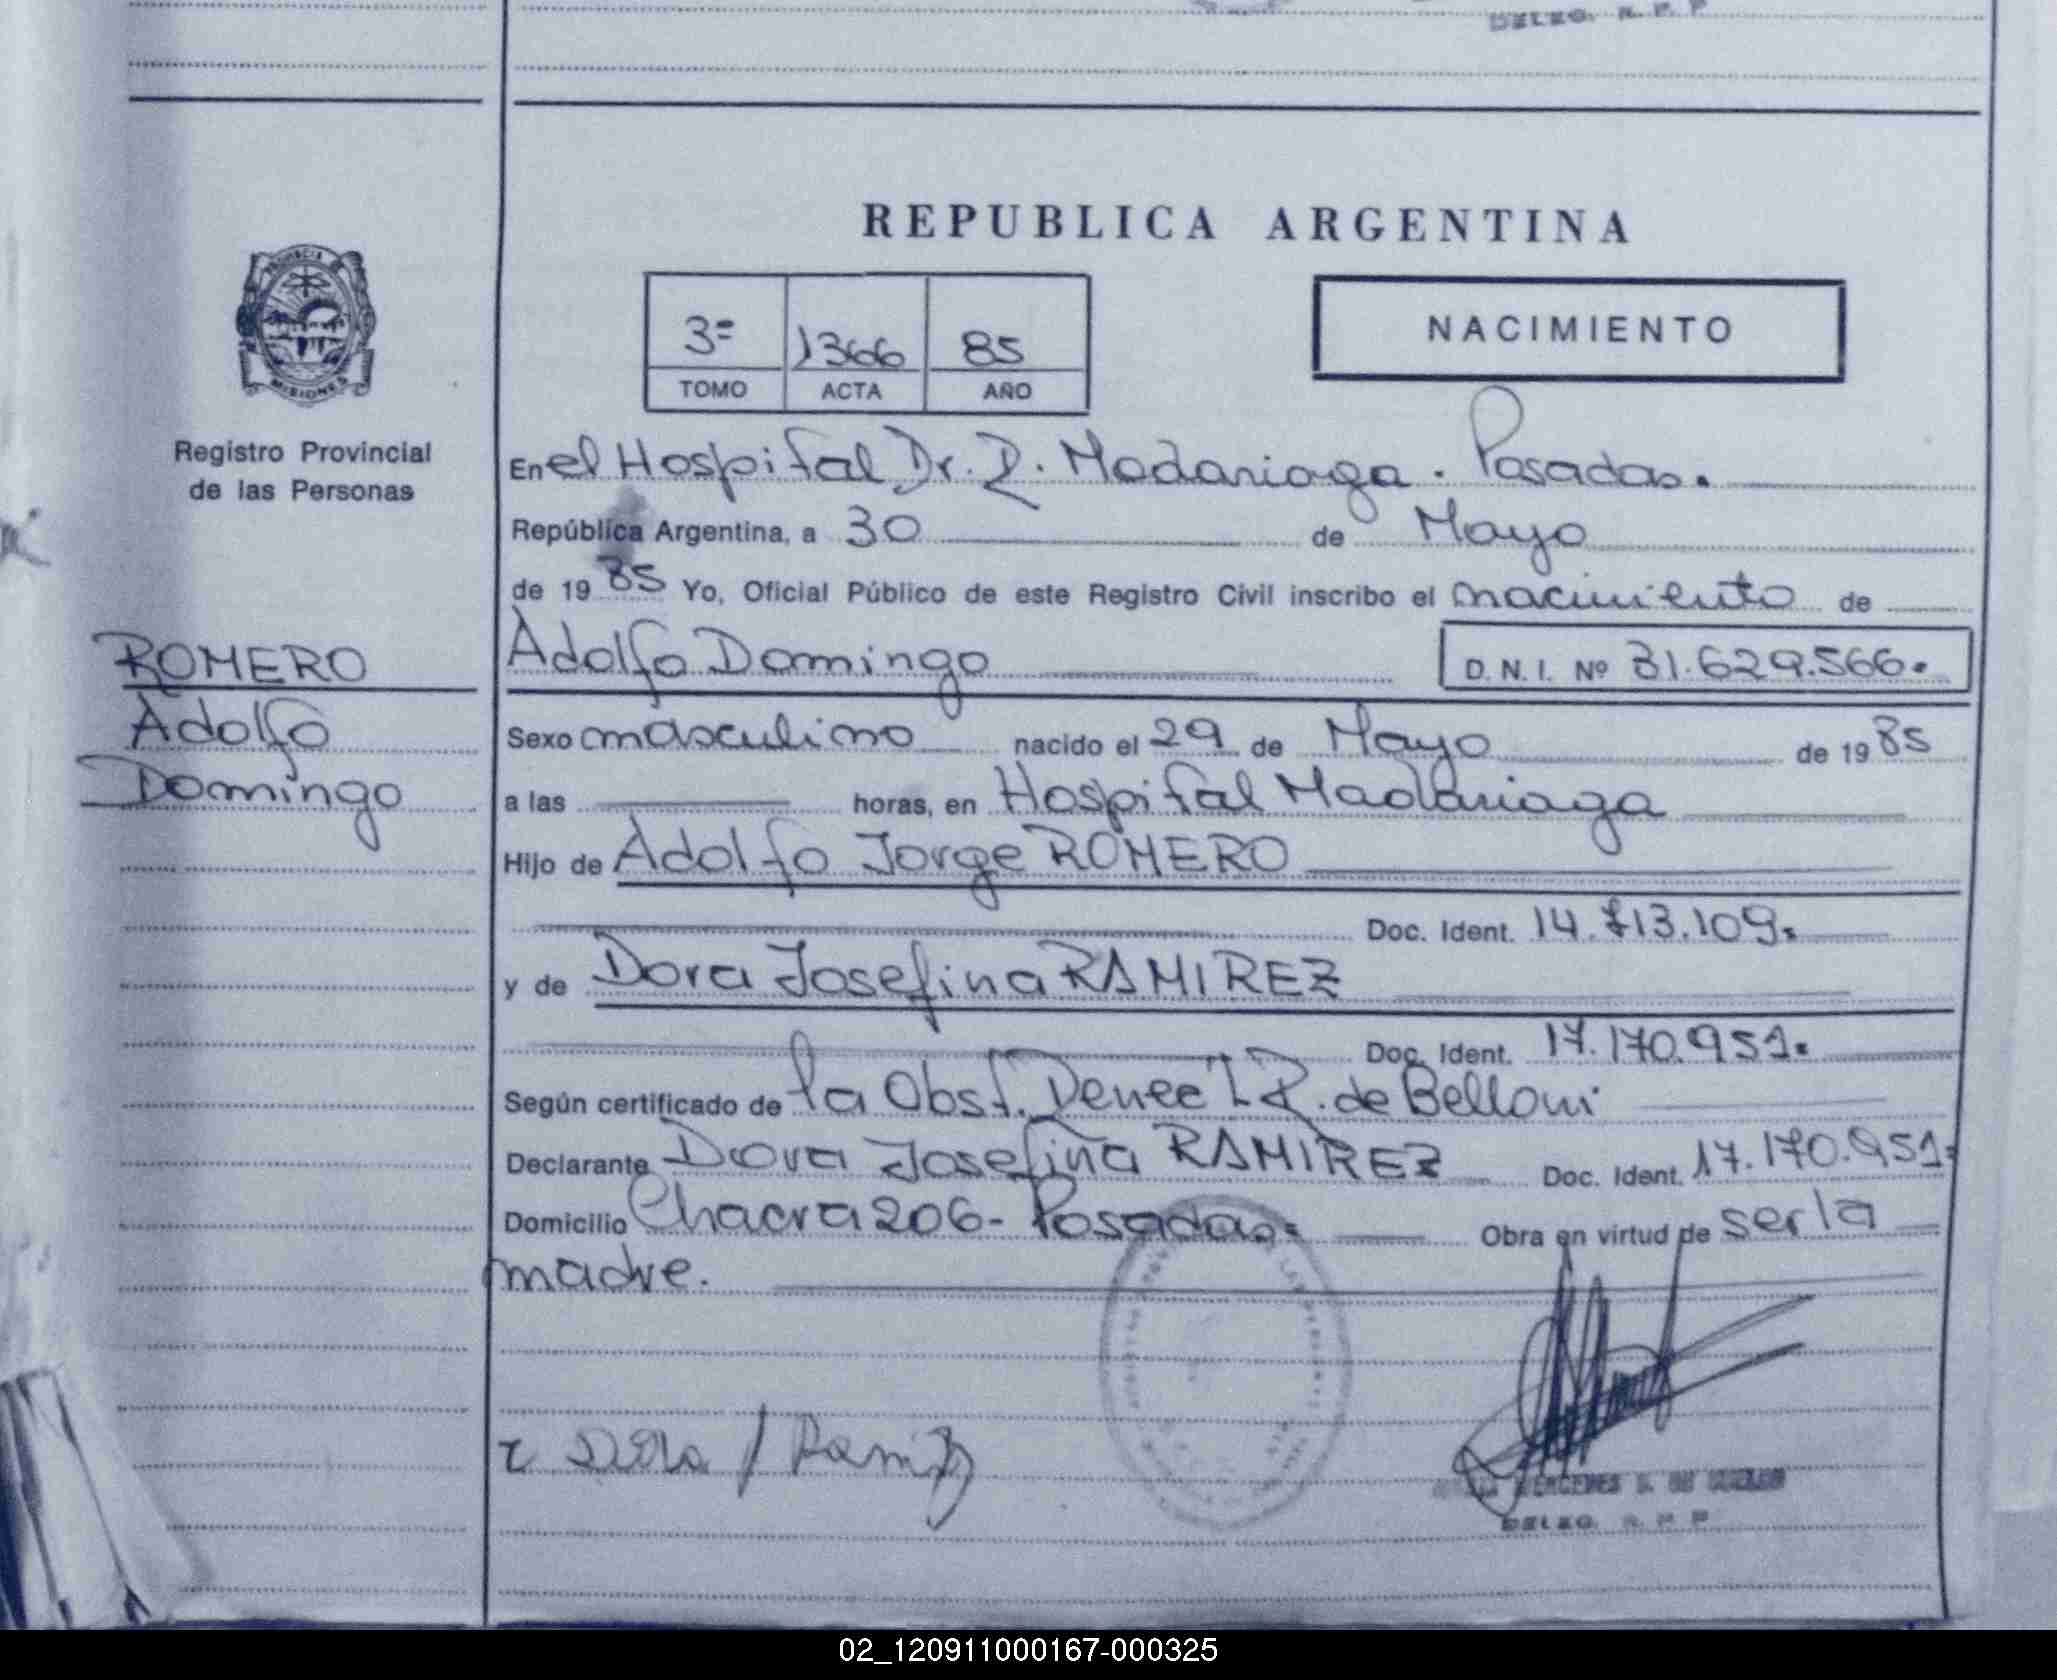 DELEG. R. P. P
REPUBLICA ARGENTINA
PROVINCIA DE
MISIONES
Registro Provincial
de las Personas
3º 1366 85
TOMO ACTA AÑO
NACIMIENTO
En el Hospital Dr. R. Madariaga. Posadas.
República Argentina, a 30 de Mayo
de 1985 Yo, Oficial Público de este Registro Civil inscribo el nacimiento de
ROMERO
Adolfo
Domingo
Adolfo Domingo D.N.I. Nº 31.629.566.
Sexo masculino nacido el 29 de Mayo de 1985
a las horas, en Hospital Madariaga
Hijo de Adolfo Jorge ROMERO
Doc. Ident. 14.713.109.
y de Dora Josefina RAMIREZ
Doc. Ident. 17.170.951.
Según certificado de la Obst. de Belloni
Declarante Dora Josefina RAMIREZ Doc. Ident. 17.170.951.
Domicilio Chacra 206- Posadas. Obra en virtud de ser la
madre.
MERCEDES
DELEG. R. P. P
02_120911000167-000325